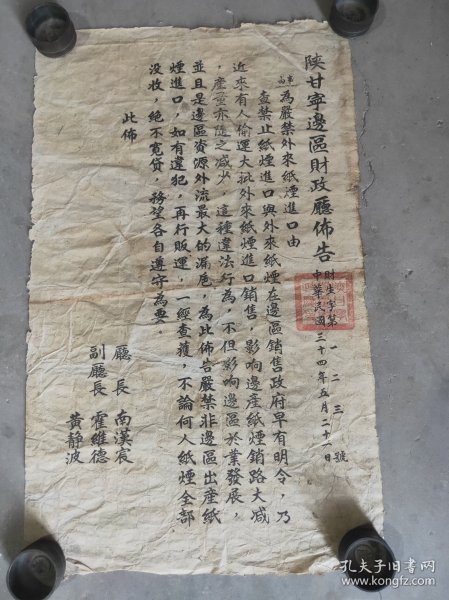 陝甘寧邊區財政廳佈告
財朱字第一二三號
中華民國三十四年五月二十一日
事由 為嚴禁外來紙煙進口由
查禁止紙煙進口與外來紙煙在邊區銷售政府早有明令，乃
近來有人偷運大批外來紙煙進口銷售，影响邊產紙煙銷路大减
，產量亦隨之减少，這種違法行為，不但影响邊區菸業發展，
並且是邊區資源外流最大的漏卮，為此佈告嚴禁非邊區出產紙
煙進口，如有違犯，再行販運，一經查獲，不論何人紙煙全部
没收，絕不寬貸，務望各自遵守為要。
此佈
廳長 南漢宸
副廳長 霍維德
黃靜波
孔夫子旧书网
www.kongfz.com